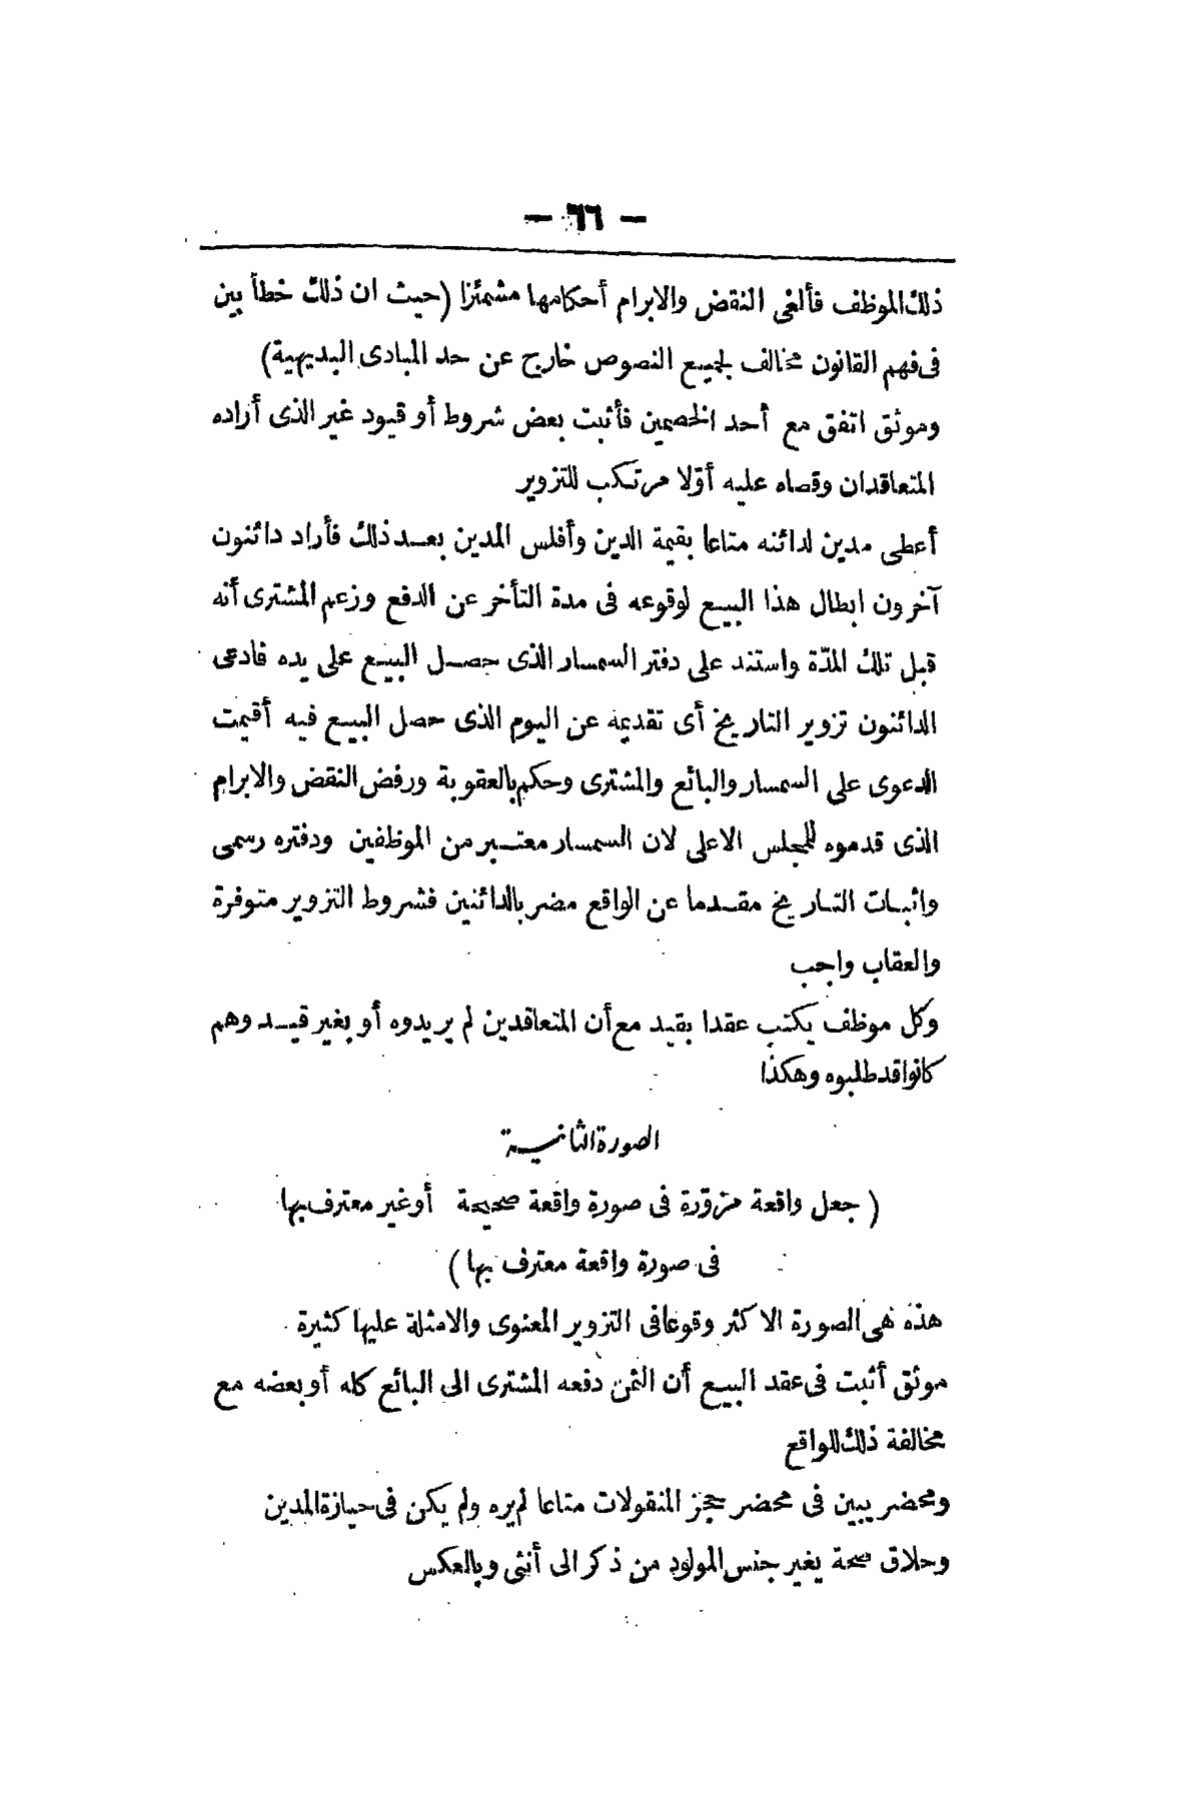 — ٦٦ —
ذلك الموظف فألغى النقض والابرام أحكامها مشمئزا (حيث ان ذلك خطأ بين
فى فهم القانون مخالف لجميع النصوص خارج عن حد المبادى البديهية)
وموثق اتفق مع أحد الخصمين فأثبت بعض شروط أو قيود غير الذى أراده
المتعاقدان وقصاه عليه أوّلا مرتكب للتزوير
أعطى مدين لدائنه متاعا بقيمة الدين وأفلس المدين بعد ذلك فأراد دائنون
آخرون ابطال هذا البيع لوقوعه فى مدة التأخر عن الدفع وزعم المشترى أنه
قبل تلك المدّة واستند على دفتر السمسار الذى حصل البيع على يده فادعى
الدائنون تزوير التاريخ أى تقديمه عن اليوم الذى حصل البيع فيه أقيمت
الدعوى على السمسار والبائع والمشترى وحكم بالعقوبة ورفض النقض والابرام
الذى قدموه للمجلس الاعلى لان السمسار معتبر من الموظفين ودفتره رسمى
واثبات التاريخ مقدما عن الواقع مضر بالدائنين فشروط التزوير متوفرة
والعقاب واجب
وكل موظف يكتب عقدا بقيد مع أن المتعاقدين لم يريدوه أو بغير قيد وهم
كانوا قد طلبوه وهكذا
الصورة الثانية
( جعل واقعة مزوّرة فى صورة واقعة صحيحة أو غير معترف بها
فى صورة واقعة معترف بها )
هذه هى الصورة الاكثر وقوعا فى التزوير المعنوى والامثلة عليها كثيرة
موثق أثبت فى عقد البيع أن الثمن دفعه المشترى الى البائع كله أو بعضه مع
مخالفة ذلك للواقع
ومحضر يبين فى محضر حجز المنقولات متاعا لم يره ولم يكن فى حيازة المدين
وحلاق صحة يغير جنس المولود من ذكر الى أنثى وبالعكس